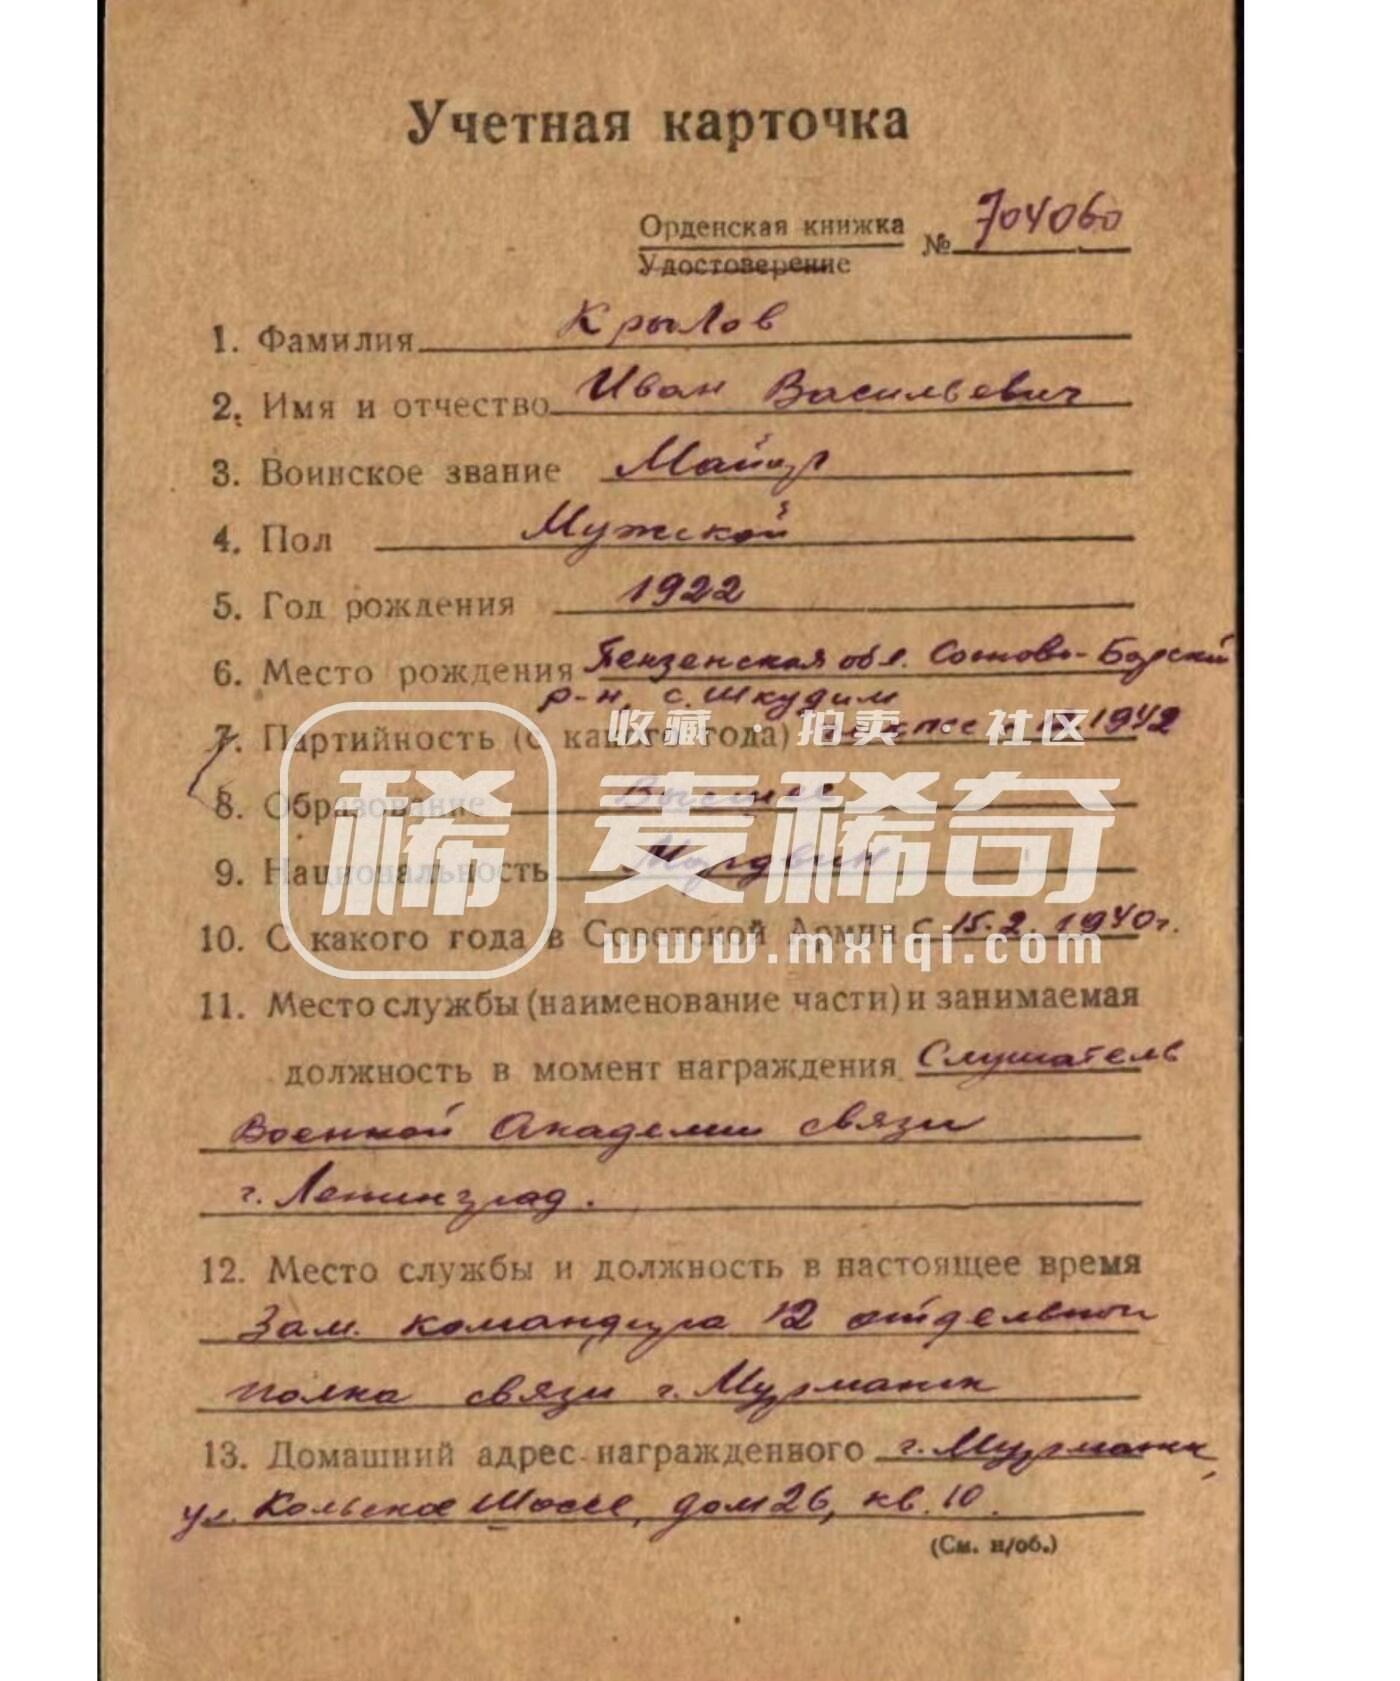 Учетная карточка
Орденская книжка
Удостоверение
№ 704060
1. Фамилия Крылов
2. Имя и отчество Иван Васильевич
3. Воинское звание Майор
4. Пол Мужской
5. Год рождения 1922
6. Место рождения Пензенская обл. Сосново-Борский
р-н, с. Шкудим
收藏 · 拍卖 · 社区
7. Партийность (с какого года) 1942
8. Образование Высшее
稀 麦稀奇
9. Национальность Мордвин
10. С какого года в Советской Армии с 15.2.1940г.
www.mxiqi.com
11. Место службы (наименование части) и занимаемая
должность в момент награждения Слушатель
Военной Академии связи
г. Ленинград.
12. Место службы и должность в настоящее время
Зам. командира 12 отдельной
полка связи г. Мурманск
13. Домашний адрес награжденного г. Мурманск,
ул. Кольское Шоссе, дом 26, кв. 10.
(См. н/об.)